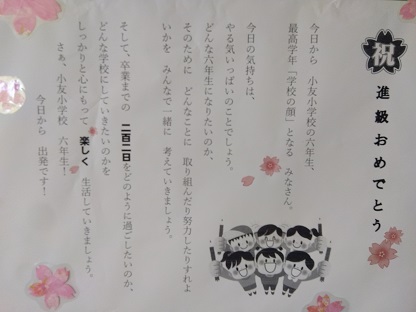 祝
進級おめでとう
今日から 小友小学校の六年生、
最高学年「学校の顔」となる みなさん。
今日の気持ちは、
やる気いっぱいのことでしょう。
どんな六年生になりたいのか、
そのために どんなことに 取り組んだり努力したりすれよ
いかを みんなで一緒に 考えていきましょう。
そして、卒業までの 二百二日をどのように過ごしたいのか、
どんな学校にしていきたいのかを
しっかりと心にもって 楽しく 生活していきましょう。
さぁ、小友小学校 六年生！
今日から 出発です！